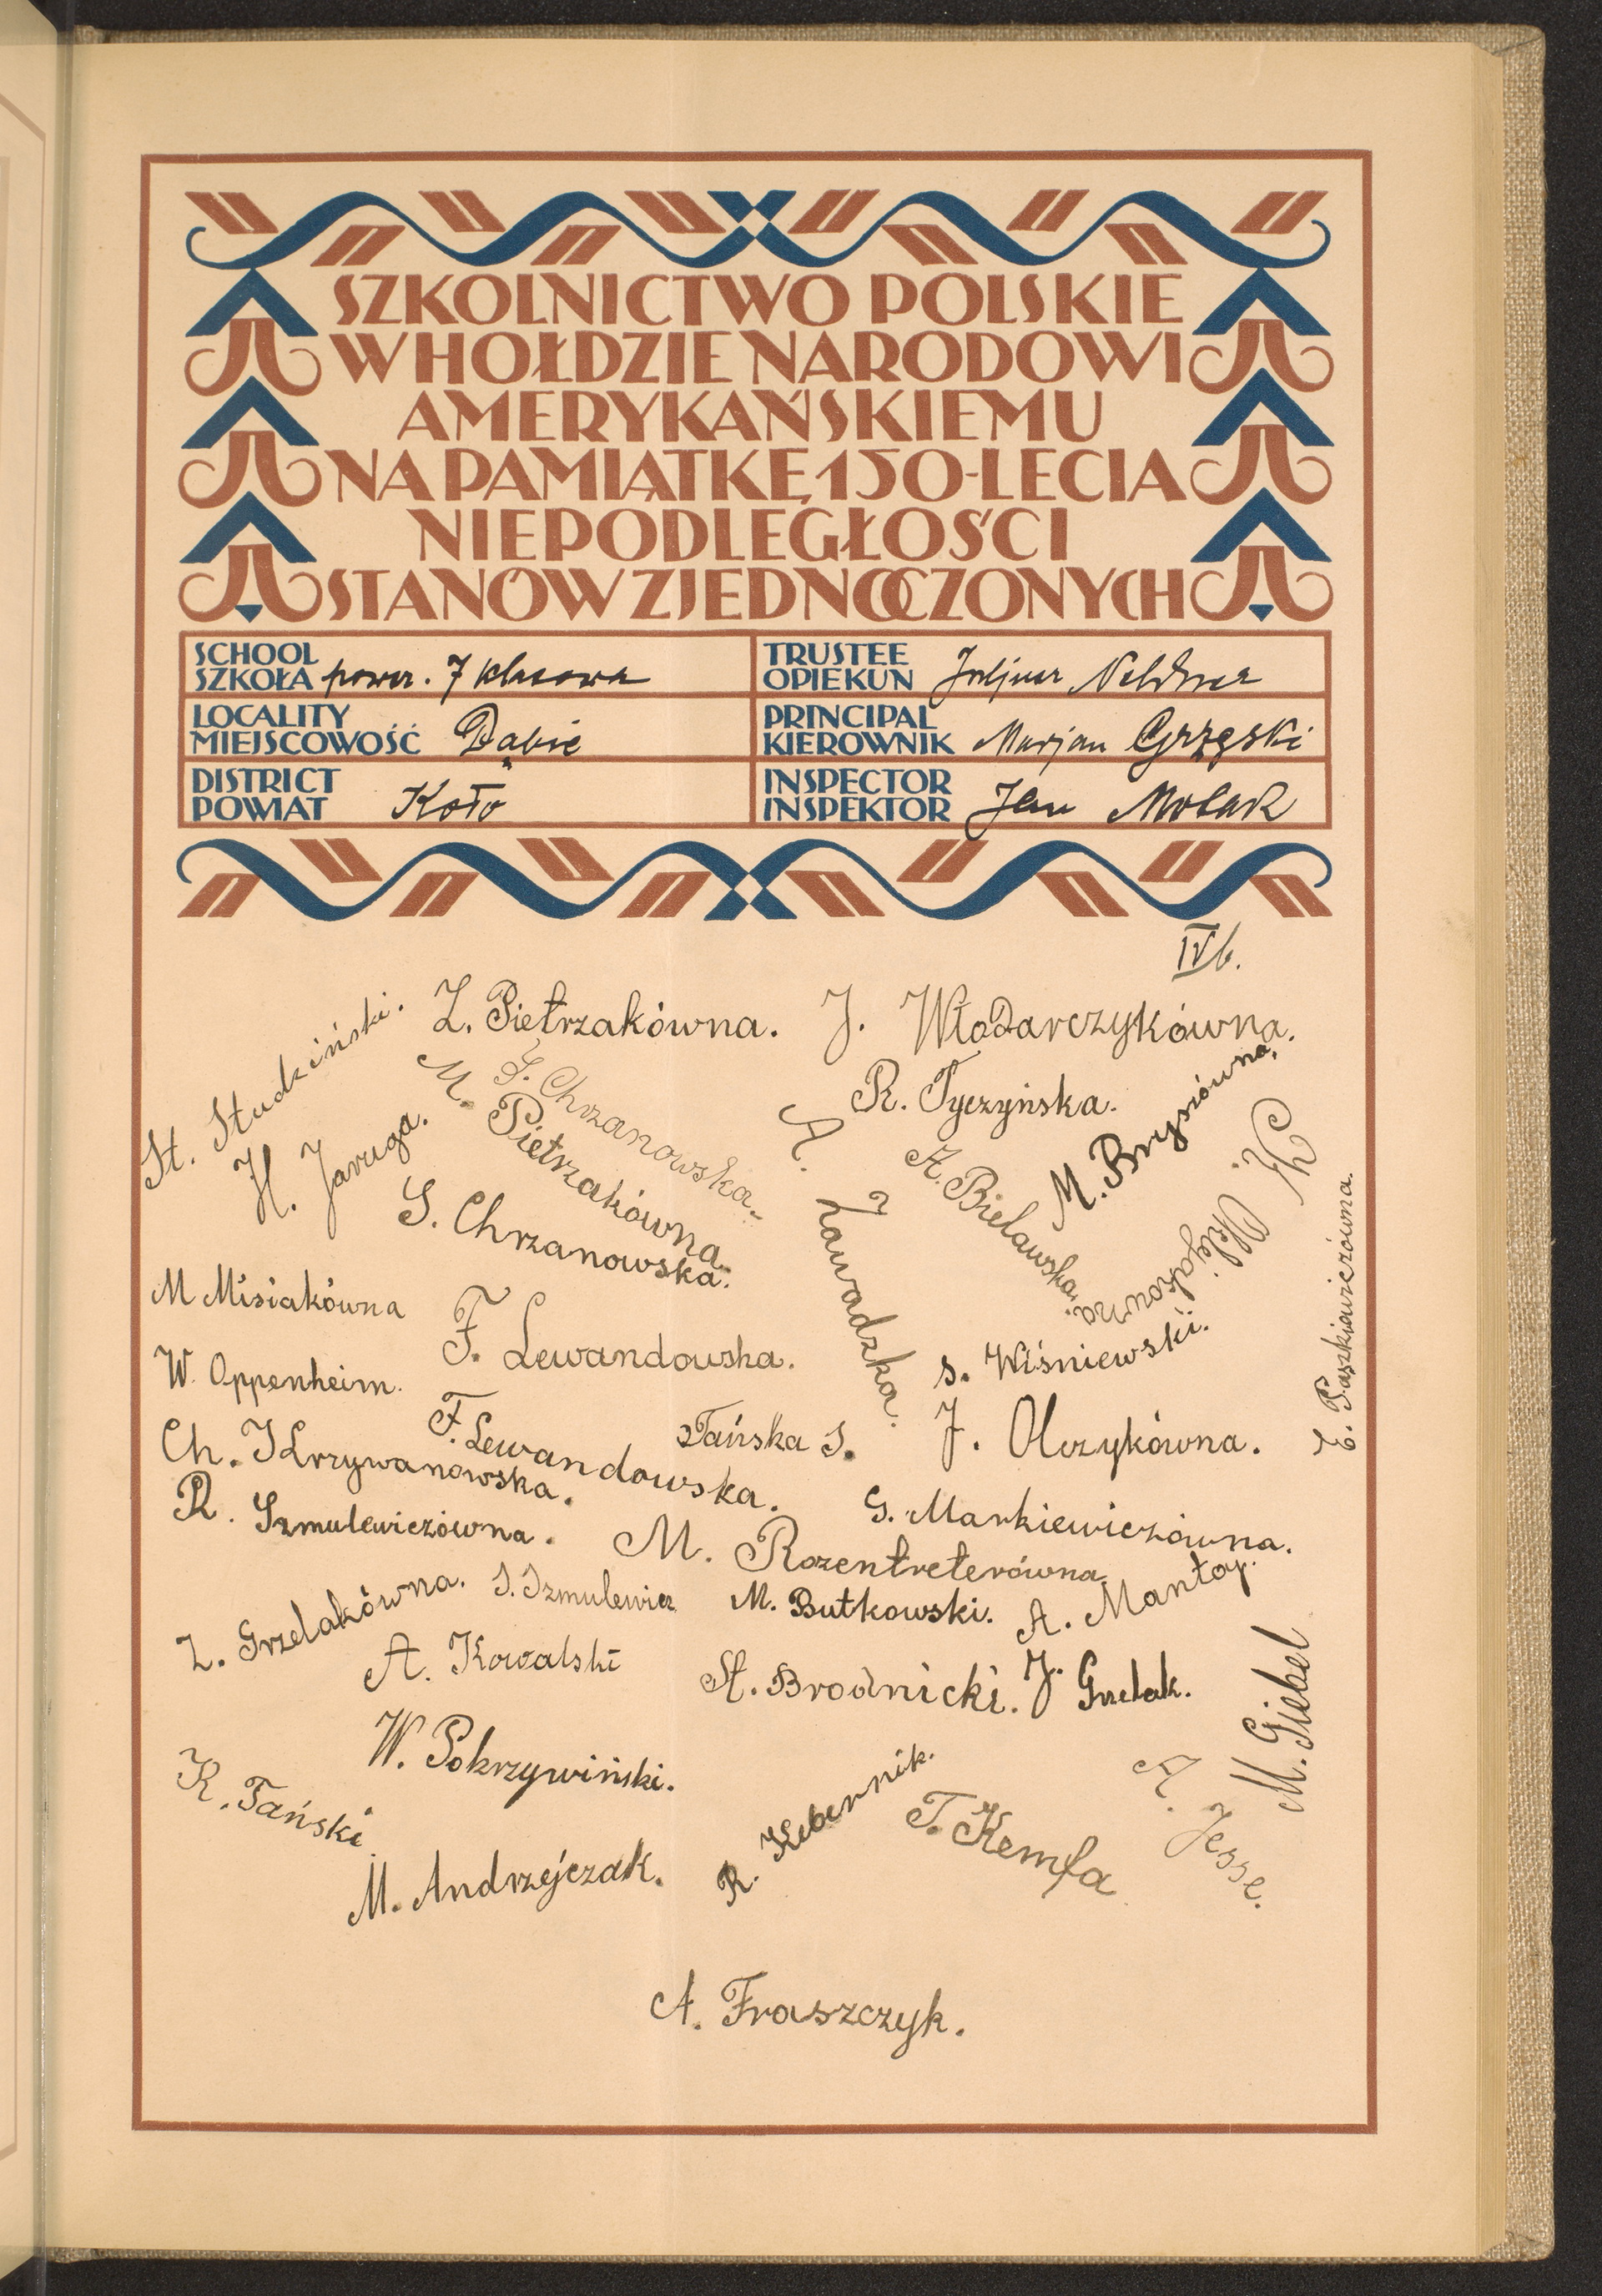 SZKOLNICTWO POLSKIE
W HOŁDZIE NARODOWI
AMERYKAŃSKIEMU
NA PAMIĄTKĘ 150-LECIA
NIEPODLEGŁOŚCI
STANÓW ZJEDNOCZONYCH
SCHOOL
SZKOŁA powsz. 7 klasowa
TRUSTEE
OPIEKUN Juljusz
LOCALITY
MIEJSCOWOŚĆ Dąbie
PRINCIPAL
KIEROWNIK Marjan Grzęski
DISTRICT
POWIAT Koło
INSPECTOR
INSPEKTOR Jan Molak
IVb.
St. Studziński.
Z. Pietrzakówna.
J. Włodarczykówna.
H. Jaruga.
M. Pietrzakówna.
S. Chrzanowska.
R. Tyczyńska.
M. Brysiówna.
S. Chrzanowska.
A. Zawadzka.
A. Bielawska.
E. Paszkiewiczówna.
M Misiakówna
F. Lewandowska.
S. Wiśniewski.
W. Oppenheim.
F. Lewandowska.
Tańska S.
J. Olczykówna.
Ch. Krzywanowska.
R. Szmulewiczówna.
G. Markiewiczówna.
M. Rozentreterówna
Z. Grzelakówna.
S. Szmulewicz
M. Butkowski.
A. Mantaj.
A. Kowalski
St. Brodnicki.
J. Grzelak.
M. Giebel
W. Pokrzywiński.
K. Tański.
R. Kebernik.
T. Kemfa
A. Jesse.
M. Andrzejczak.
A. Fraszczyk.